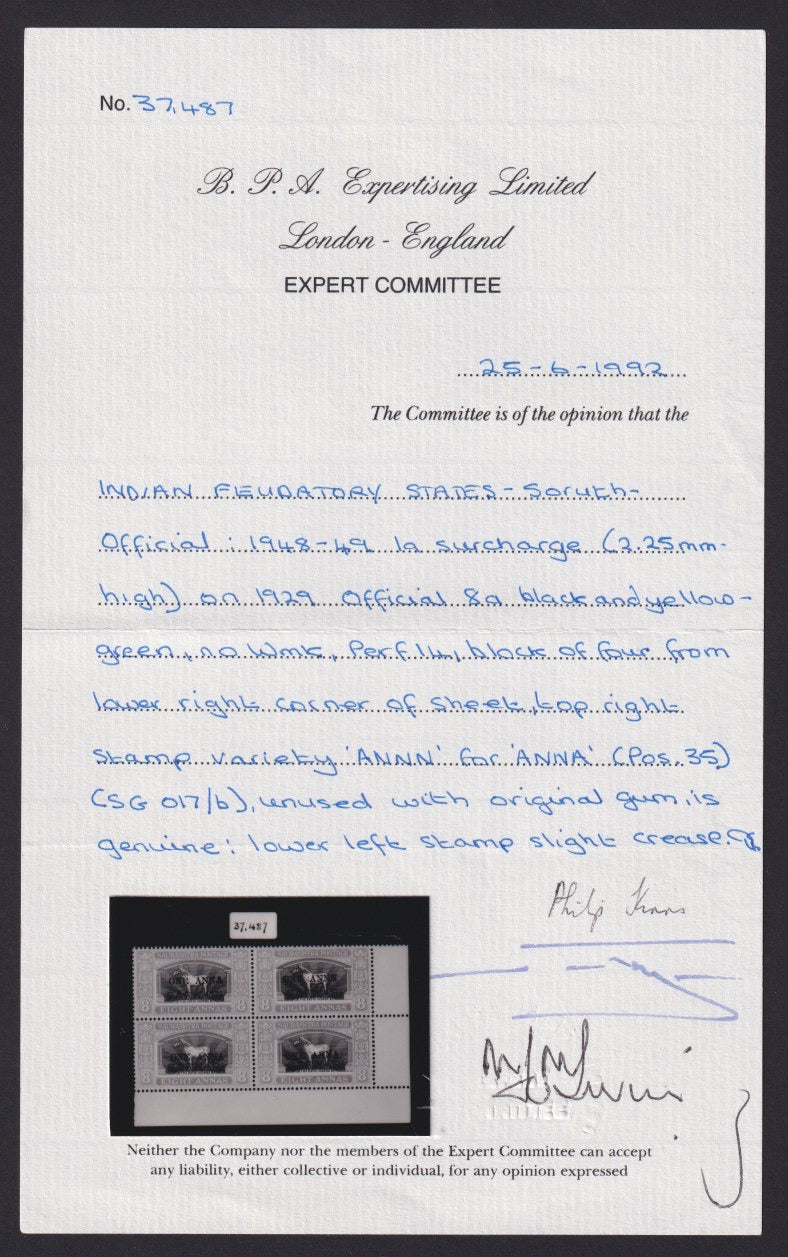 No. 37,487
B. P. A. Expertising Limited
London - England
EXPERT COMMITTEE
25-6-1992
The Committee is of the opinion that the
INDIAN FEUDATORY STATES - Soruth -
Official : 1948-49 1a surcharge (2.25mm.
high) on 1929 Official 8a black and yellow-
green, no Wmk, Perf 14, block of four from
lower right corner of sheet, top right
stamp variety 'ANNN' for 'ANNA' (Pos. 35)
(SG O17/b), unused with original gum, is
genuine: lower left stamp slight crease.
Philip
37.487
SAURASHTRA POSTAGE SAURASHTRA POSTAGE
ONE ANNA ONE ANNN
8 EIGHT ANNAS 8 8 EIGHT ANNAS 8
SAURASHTRA POSTAGE SAURASHTRA POSTAGE
ONE ANNA ONE ANNA
8 EIGHT ANNAS 8 8 EIGHT ANNAS 8
Neither the Company nor the members of the Expert Committee can accept
any liability, either collective or individual, for any opinion expressed